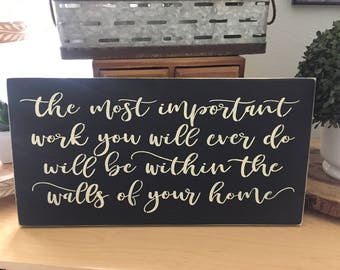 the most important
work you will ever do
will be within the
walls of your home